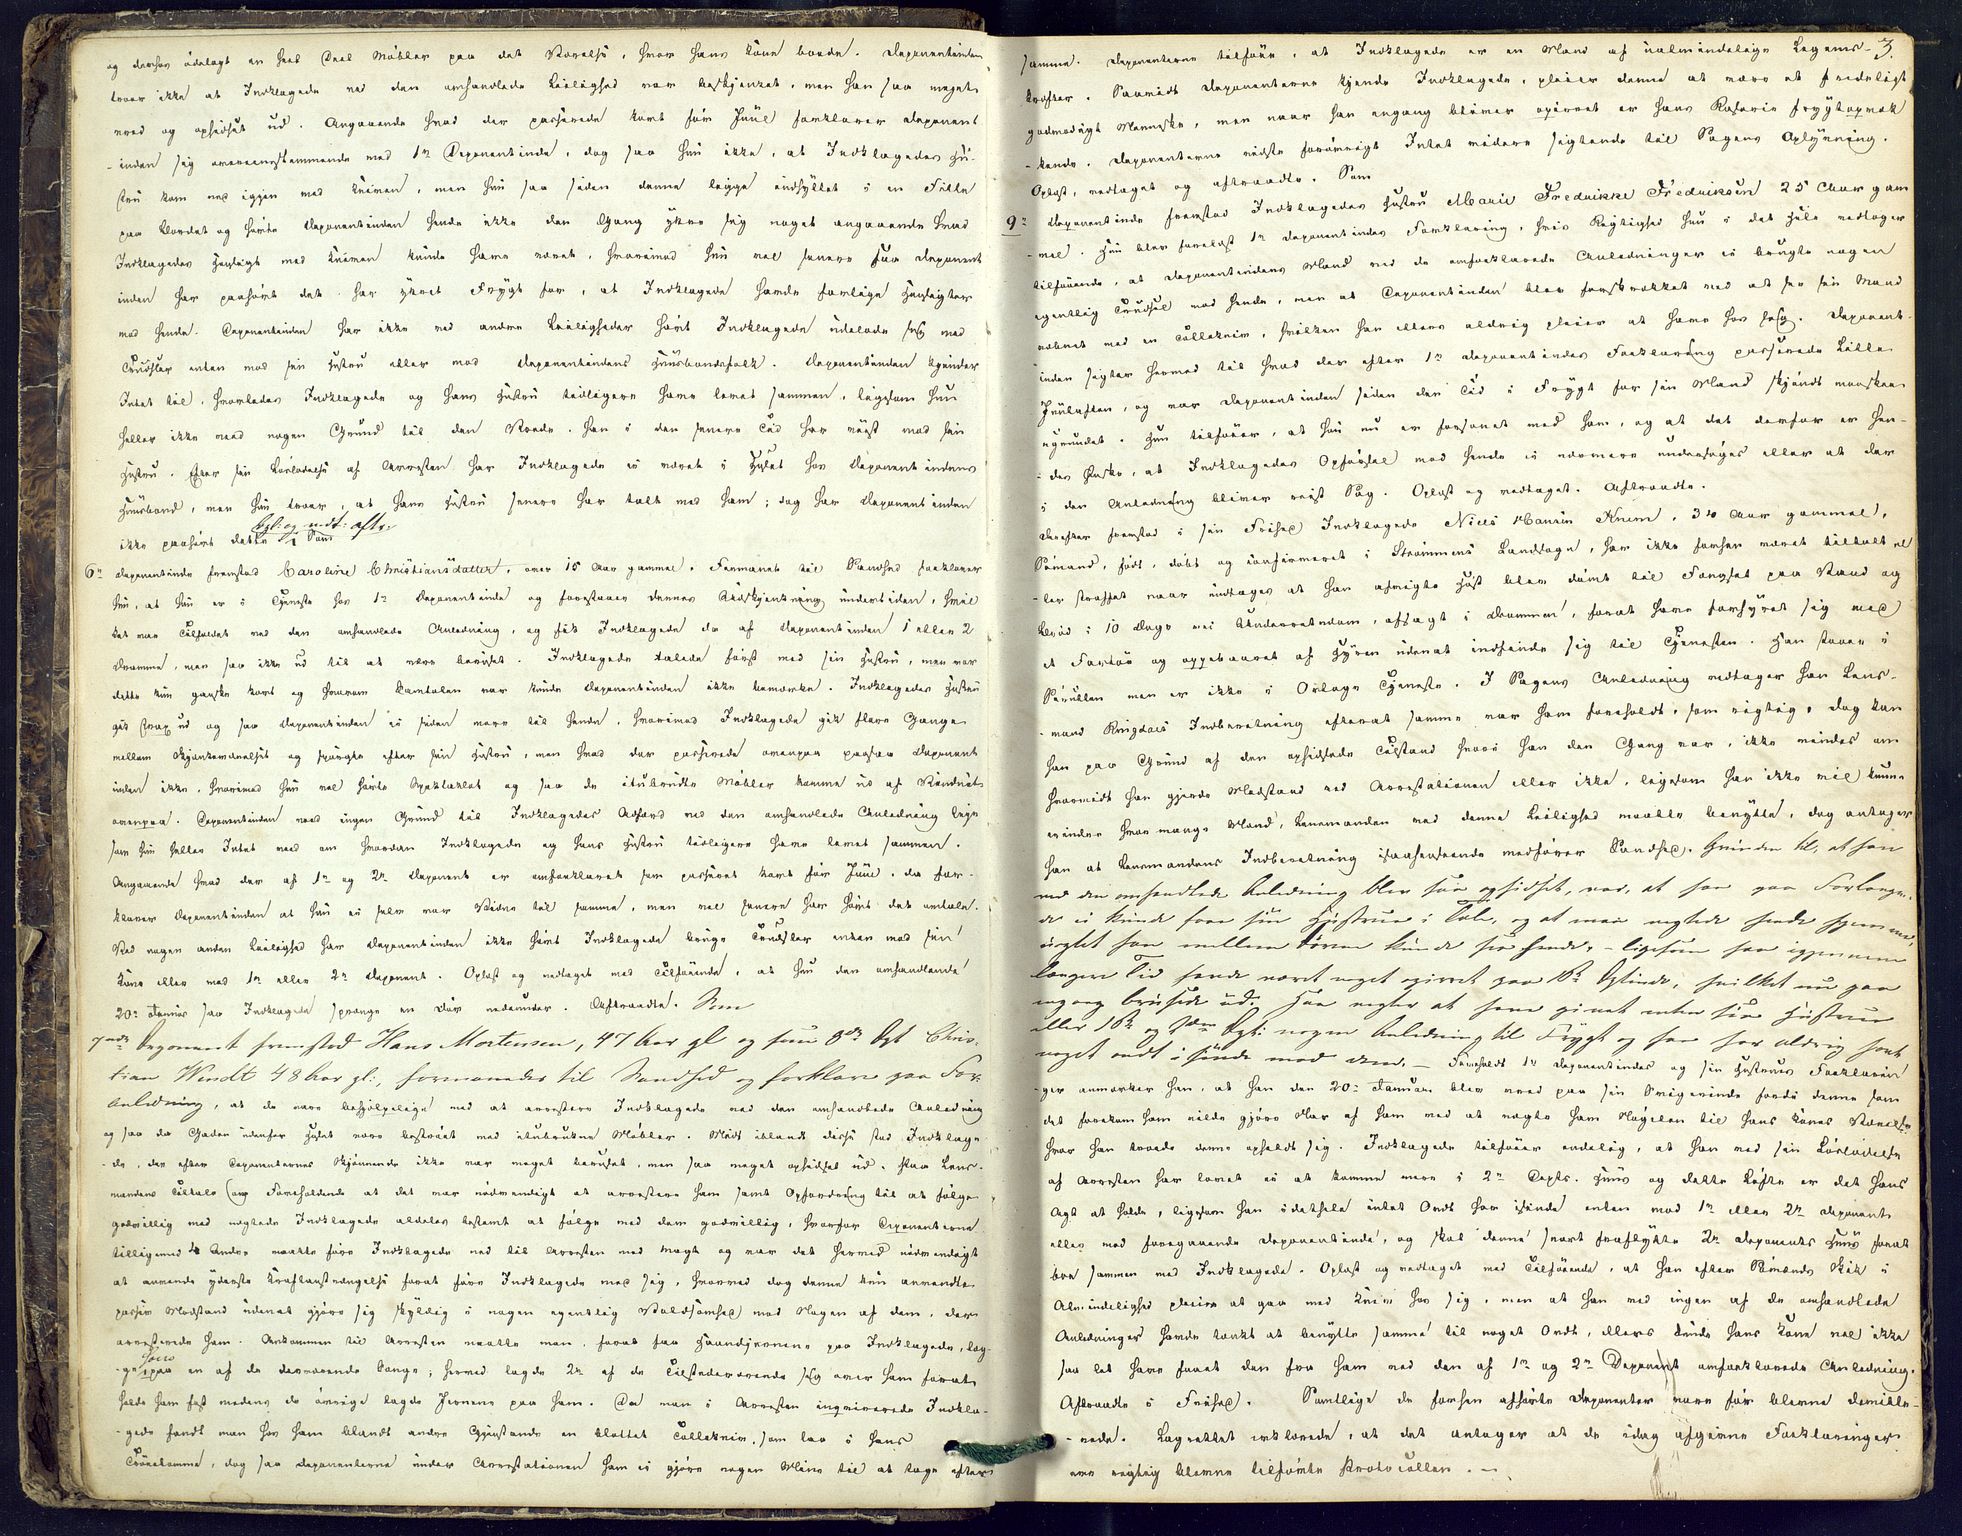 og derhos ødelagt en heel Deel Møbler paa det Værelse, hvor hans Kone boede. Deponentinden
troer ikke at Indklagede ved den omhandlede Leilighed var beskjænket, men han saa meget
vred og ophidset ud. Angaaende hvad der passerede kort før Juul forklarer Deponent
-inden sig overeensstemmende med 1ste Deponentinde, dog saa hun ikke, at Indklagedes Hu-
stru kom ned igjen med Kniven, men hun saa siden denne ligge indhyllet i en Fille
paa Bordet og hørte Deponentinden hende ikke den Gang yttre sig noget angaaende hvad
Indklagedes Hensigt med Kniven kunde have været, hvorimod hun vel senere har Deponent
inden har paahørt det har yttret Frygt for, at Indklagede havde farlige Hensigter
mod hende. Deponentinden har ikke ved andre Leiligheder hørt Indklagede udelade sig med
Trudsler enten mod sin Hustru eller mod Deponentindens Huusbondsfolk. Deponentinden kjender
Intet til, hvorledes Indklagede og hans Hustru tidligere have levet sammen, ligesom hun
heller ikke veed nogen Grund til den Vrede han i den senere Tid har viist mod sin
Hustru. Efter sin Løsladelse af Arresten har Indklagede ei været i Huset hos Deponentindens
Huusbond, men hun troer, at hans Hustru senere har talt med ham; dog har Deponentinden
ikke paahørt dette. Opl: og vedt: aftr: Som
6te Deponentinde fremstod Caroline Christiansdatter, over 15 Aar gammel. Formanet til Sandhed forklarer
hun, at hun er i Tjeneste hos 1ste Deponentinde og forestaaer dennes Ølskjænkning undertiden, hvil
ket var Tilfældet ved den omhandlede Anledning, og fik Indklagede da af Deponentinden 1 eller 2
Dramme, men saa ikke ud til at være beruset. Indklagede talede først med sin Hustru, men var
dette kun ganske kort og hvorom Samtalen var kunde Deponentinden ikke bemærke. Indklagedes Hustru
gik strax ud og saa Deponentinden ei siden mere til hende, hvorimod Indklagede gik flere Gange
mellem Skjænkeværelset og spurgte efter sin Hustru, men hvad der passerede ovenpaa paasaa Deponent
inden ikke, hvorimod hun vel hørte Spektaklet og saa de itubrudte Møbler komme ud af Vinduet
ovenpaa. Deponentinden veed ingen Grund til Indklagedes Adfærd ved den omhandlede Anledning lige
som hun heller Intet veed om hvordan Indklagede og hans Hustru tidligere have levet sammen.
Angaaende hvad der af 1ste og 2den Deponent er omforklaret som passeret kort før Juul, da for-
klarer Deponentinden at hun ei selv var Vidne til samme, men vel senere har hørt det omtale.
Ved nogen anden Leilighed har Deponentinden ikke hørt Indklagede bruge Trudsler enten mod sin
Kone eller mod 1ste eller 2den Deponent. Oplæst og vedtaget med Tilføiende, at hun den omhandlende
20de Januar saa Indklagede sprænge en Dør nedenunder. Aftraadte. Som
7nde Deponent fremstod Hans Mortensen, 47 Aar gl og som 8de Dpt Chris-
tian Windt 48 Aar gl:, formanedes til Sandhed og forklare paa For-
anledning, at de vare behjælpelige med at arrestere Indklagede ved den omhandlede Anledning
og saa da Gaden udenfor Huset være bestrøet med itubrukne Møbler. Midt iblandt disse stod Indklage-
de, der efter Deponenternes Skjønnende ikke var meget beruset, men saa meget ophidset ud. Paa Lens-
mandens Tiltale om Foreholdende at det var nødvendigt at arrestere ham samt Opfordring til at følge
godvillig med nægtede Indklagede aldeles bestemt at følge med dem godvillig, hvorfor Deponenterne
tilligemed 4 Andre maatte føre Indklagede ned til Arresten med Magt og var det herved nødvendigt
at anvende yderste Kraftanstrængelse forat føre Indklagede med sig, hvorved dog denne kun anvendte
passiv Modstand uden at gjøre sig skyldig i nogen egentlig Voldsomhed mod Nogen af dem, der
arresterede ham. Ankommen til Arresten maatte man, forat faa Haandjernene paa Indklagede, læg-
ge ham paa en af de derværende Bænge; hermed lagde 2de af de Tilstedeværende sig over ham forat
holde ham fast medens de øvrige lagde Jernene paa ham. Da man i Arresten inqvirerede Indkla-
gede fandt man hos ham blandt andre Gjenstande en blottet Tollekniv, som laa i hans
Trøielomme, dog saa Deponenterne under Arrestationen ham ei gjøre nogen Mine til at tage efter
3.
samme. Deponenterne tilføie, at Indklagede er en Mand af ualmindelige Legems-
kræfter. Saavidt Deponenterne kjende Indklagede, pleier denne at være et fredeligt
godmodigt Menneske, men naar han engang bliver opirret er hans Raseri frygtopvæk
-kende. Deponenterne vidste forøvrigt Intet videre sigtende til Sagens Oplysning.
Oplæst, vedtaget og aftraadte. Som
9de Deponentinde fremstod Indklagedes Hustru Marie Fredrikke Fredriksen 25 Aar gam
-mel. Hun blev forelæst 1ste Deponentindes Forklaring, hvis Rigtighed hun i det Hele vedtager
tilføiende, at Deponentindens Mand ved de omforklarede Anledninger ei brugte nogen
egentlig Trudsel mod hende, men at Deponentinden blev forskrækket ved at see sin Mand
væbnet med en Tollekniv, hvilken han ellers aldrig pleier at have hos sig. Deponent-
inden sigter hermed til hvad der efter 1ste Deponentindes Forklaring passerede Lille
Juulaften, og var Deponentinden siden den Tid i Frygt for sin Mand skjøndt maaskee
ugrundet. Hun tilføier, at hun nu er forsonet med ham, og at det derfor er hen-
des Ønske, at Indklagedes Opførsel mod hende ei nærmere undersøges eller at der
i den Anledning bliver reist Sag. Oplæst og vedtaget. Aftraadte.
Derefter fremstod i sin Frihed Indklagede Niels Hansen Knem, 34 Aar gammel,
Sømand, født, døbt og confirmeret i Strømmens Landsogn, har ikke forhen været tiltalt el
-ler straffet naar undtages at han afvigte Høst blev dømt til Fængsel paa Vand og
Brød i 10 Dage ved Underretsdom, afsagt i Drammen, forat have forhyret sig med
et Fartøi og oppebaaret af Hyren uden at indfinde sig til Tjenesten. Han staaer i
Sørullen men er ikke i Orlogs Tjeneste. I Sagens Anledning vedtager han Lens-
-mand Ringdals Indberetning efterat samme var ham foreholdt, som rigtig, dog kan
han paa Grund af den ophidsede Tilstand hvori han den Gang var, ikke mindes om
hvorvidt han gjorde Modstand ved Arrestationen eller ikke, ligesom han ikke vil kunne
erindre hvor mange Mand, Lensmanden ved denne Leilighed maatte benytte, dog antager
han at Lensmandens Indberetning isaahenseende medfører Sandhed. Grunden til, at han
ved den omhandlede Anledning blev saa ophidset, var, at han paa Forlangen-
de ei kunde faae sin Hustrue i Tale, og at man negtede hende hjemme,
uagtet han mellem Døren kunde see hende, - ligesom han igjennem
længere Tid havde været noget opirret paa 1ste Dptinde, hvilket nu paa
engang brusede ud. Han negter at have givet enten sin Hustrue
eller 1ste og 2den Dpt: nogen Anledning til Frygt og han har aldrig havt
noget ondt i sinde mod dem. - Foreholdt 1ste Deponentindes og sin Hustrues Forklarin
-ger anmærker han, at han den 20de Januar blev vred paa sin Svigerinde fordi denne som
det forekom ham vilde gjøre Nar af ham ved at nægte ham Nøgelen til hans Kones Værelse
hvor han troede denne opholdt sig. Indklagede tilføier endelig, at han ved sin Løsladelse
af Arresten har lovet ei at komme mere i 2den Depts. Huus og dette Løfte er det hans
Agt at holde, ligesom han idethele intet Ondt har isinde enten mod 1ste eller 2den Deponent
eller mod foregaaende Deponentinde, og skal denne snart fraflytte 2den Deponents Huus forat
boe sammen med Indklagede. Oplæst og vedtaget med Tilføiende, at han efter Sømænds Skik i
Almindelighed pleier at gaa med Kniv hos sig, men at han ved ingen af de omhandlede
Anledninger havde tænkt at benytte samme til noget Ondt, ellers kunde hans Kone vel ikke
saa let have faaet den fra ham ved den af 1ste og 2den Deponent omforklarede Anledning.
Aftraadte i Frihed. Samtlige de forhen afhørte Deponenter vare før blevne demitte-
-rede. Lagrettet erklærede, at det antager at de idag afgivne Forklaringer
ere rigtig blevne tilførte Protocollen. -